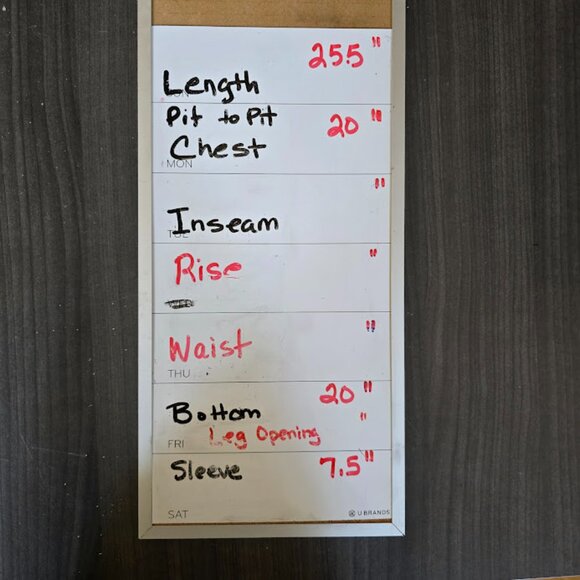 25.5"
Length
Pit to Pit
20"
Chest
MON
"
Inseam
"
Rise
"
Waist
THU
20"
Bottom
"
FRI Leg Opening
Sleeve 7.5"
SAT U BRANDS